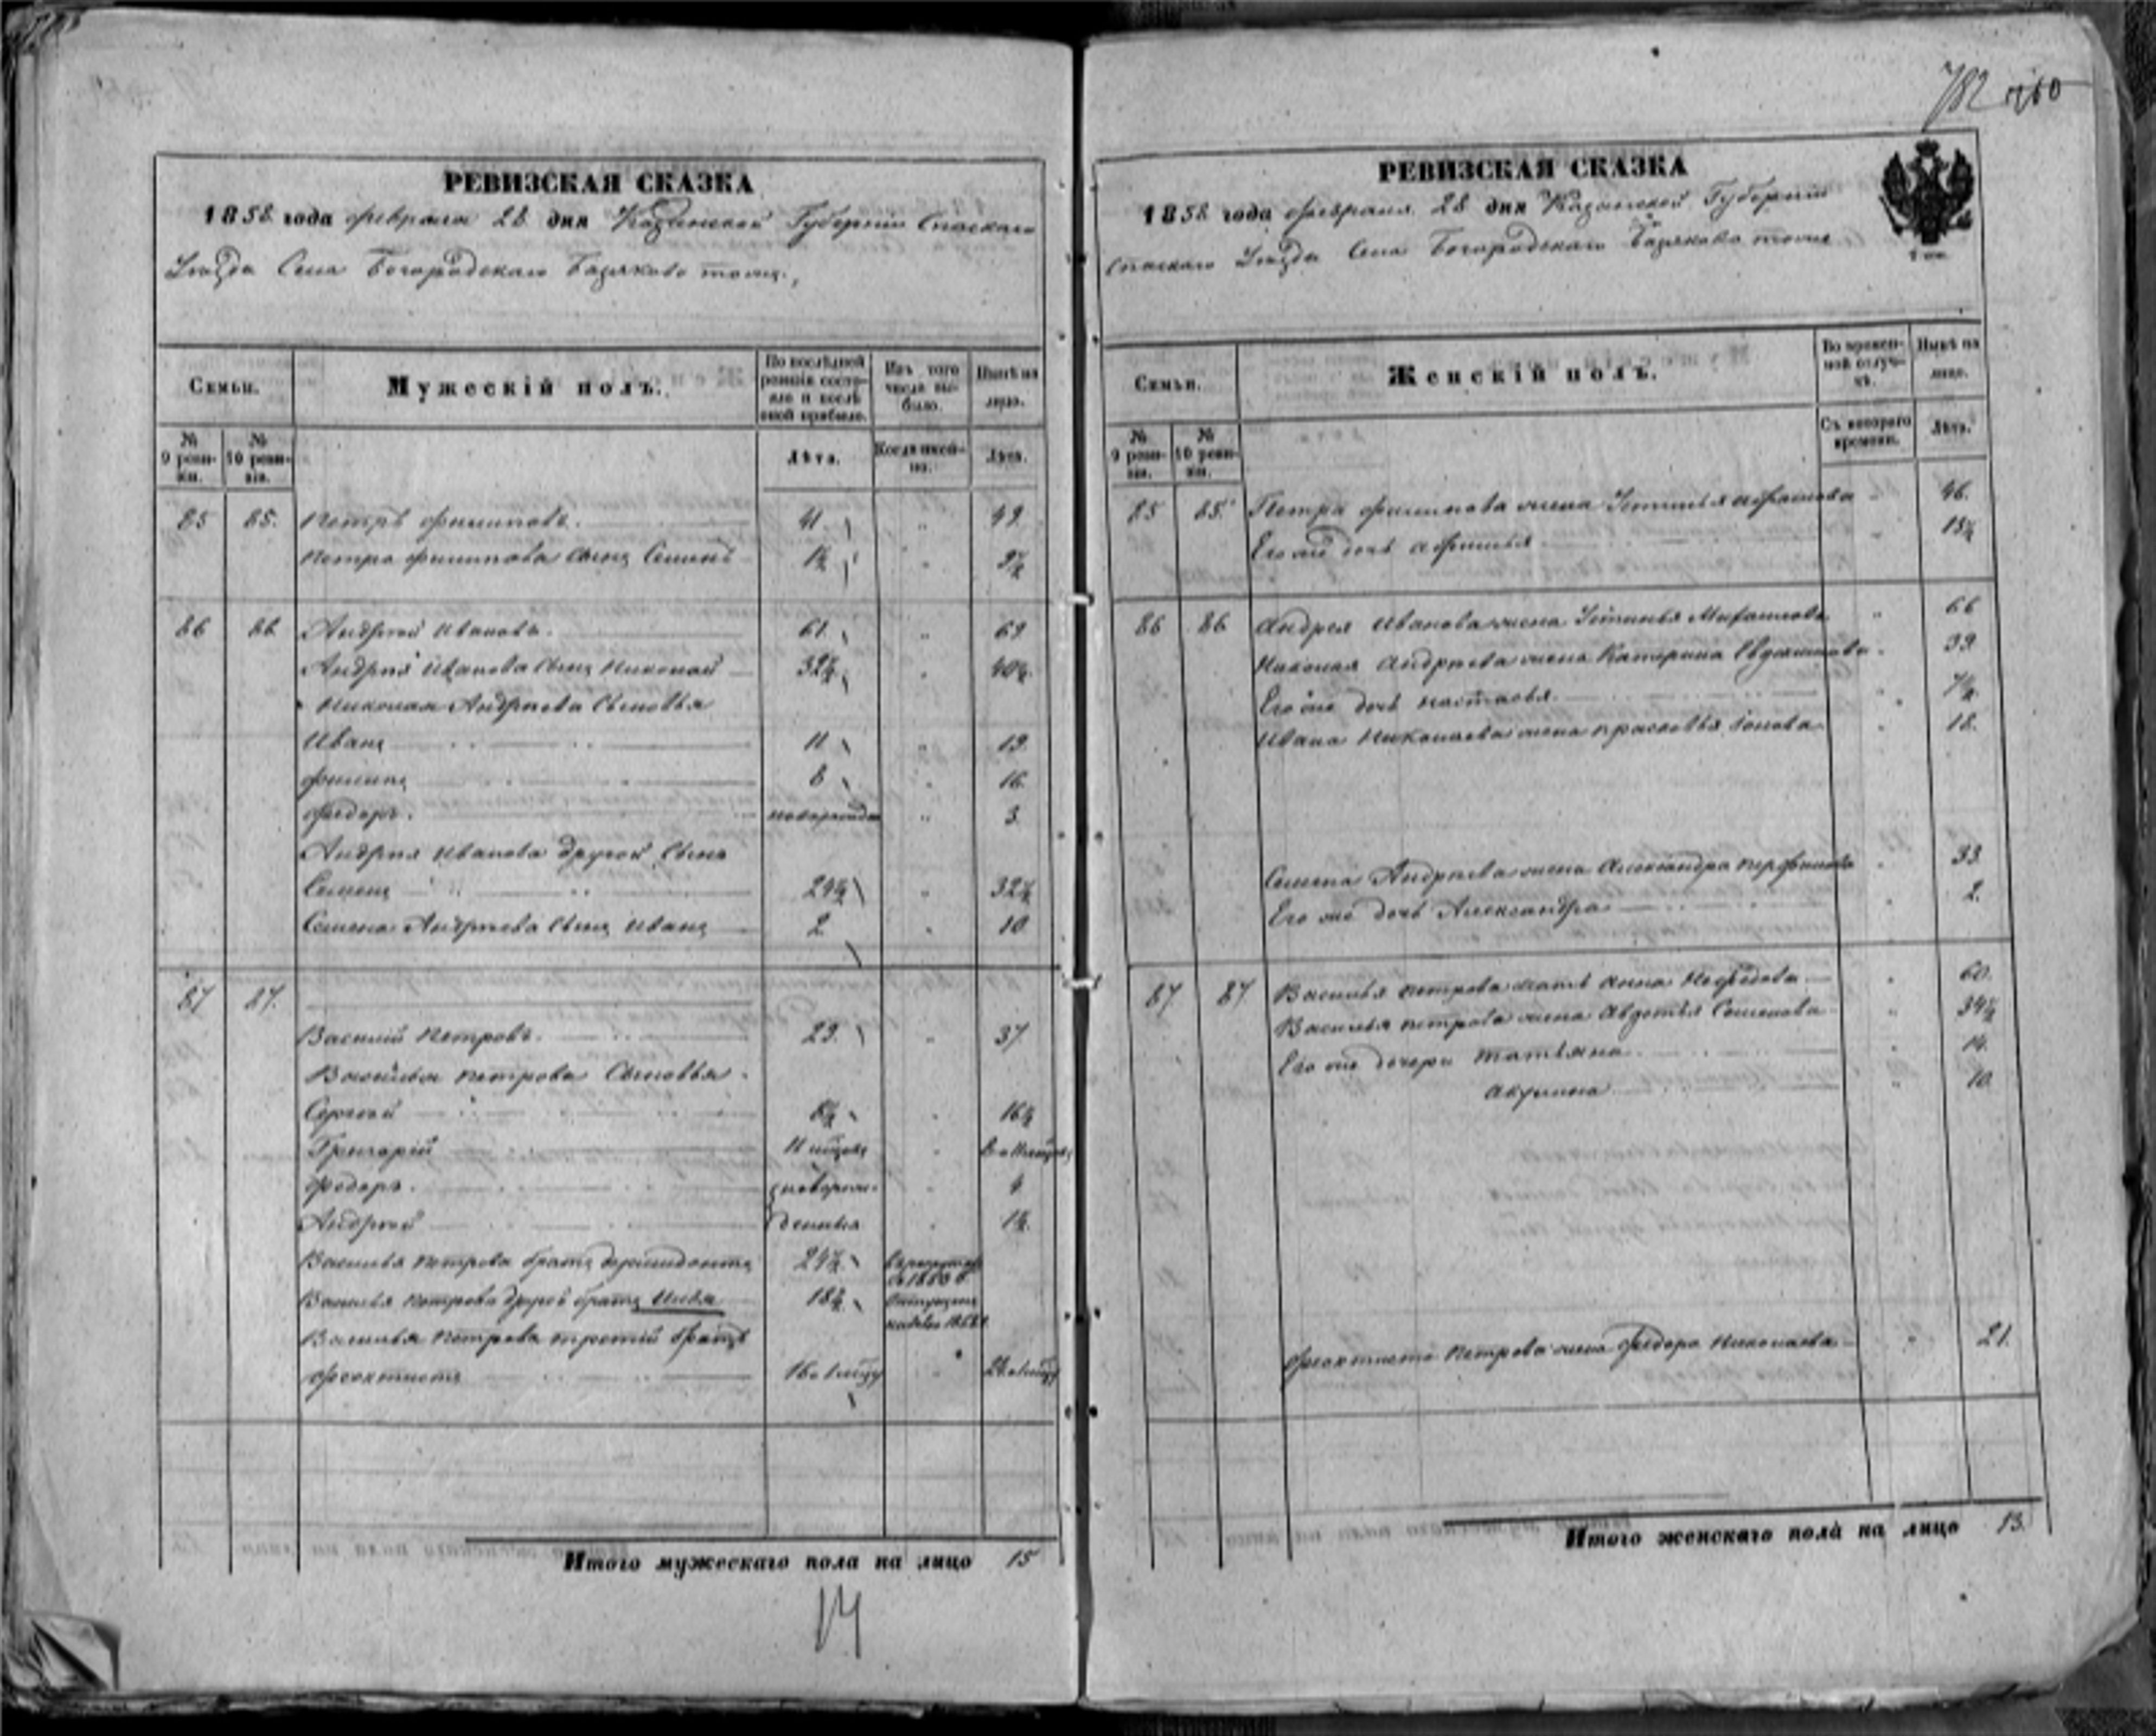 782 760
РЕВИЗСКАЯ СКАЗКА
1858 года февраля 28 дня Казанской Губерніи Спаскаго
Уѣзда Села Богородскаго Базяково тожъ,
Семьи.
Мужескій полъ.
По послѣдней ревизіи состояло и послѣ оной прибыло.
Изъ того числа выбыло.
Нынѣ на лицо.
№ 9 ревизіи.
№ 10 ревизіи.
Лѣта.
Когда именно.
Лѣта.
85 85. Петръ Филиповъ. 41. " 49
Петра Филипова сынъ Семенъ 1½ " 9½
86 86 Андрей Ивановъ. 61. " 69
Андрея Иванова сынъ Николай 32½ " 40½
Николая Андреева сыновья
Иванъ 11 " 19.
Филипъ 8 " 16.
Федоръ. новорожден " 3.
Андрея Иванова другой сынъ
Семенъ 24½ " 32½
Семена Андреева сынъ Иванъ 2 " 10
87 87.
Василій Петровъ. 29. " 37
Василья Петрова сыновья
Сергей 8½ " 16½
Григорій 11 мѣсяц "
Федоръ. новорож-
Андрей денныя " 1½
Василья Петрова братъ 24½
Василья Петрова другой братъ Илья 18½
Василья Петрова третій братъ
Феоктистъ "
Итого мужескаго пола на лицо 15
14
РЕВИЗСКАЯ СКАЗКА
1858 года февраля 28 дня Казанской Губерніи
Спаскаго Уѣзда Села Богородскаго Базяково тожъ
Семьи.
Женскій полъ.
Во временной отлучкѣ.
Нынѣ на лицо.
№ 9 ревизіи.
№ 10 ревизіи.
Съ котораго времени.
Лѣта.
85 85 Петра Филипова жена Устинья " 46.
Его же дочь Афимья "
86 86 Андрея Иванова жена Устинья Михайлова " 66
Николая Андреева жена Катерина Евдокимова " 39
Его же дочь Настасья "
Ивана Николаева жена Прасковья Іонова " 18.
Семена Андреева жена Александра " 33
Его же дочь Александра " 2.
87 87 Василья Петрова мать Анна Нефедова " 60.
Василья Петрова жена Авдотья Семенова " 34½
Его же дочери Татьяна " 14.
Акулина " 10
Феоктиста Петрова жена Федора Николаева " 21.
Итого женскаго пола на лицо 13.